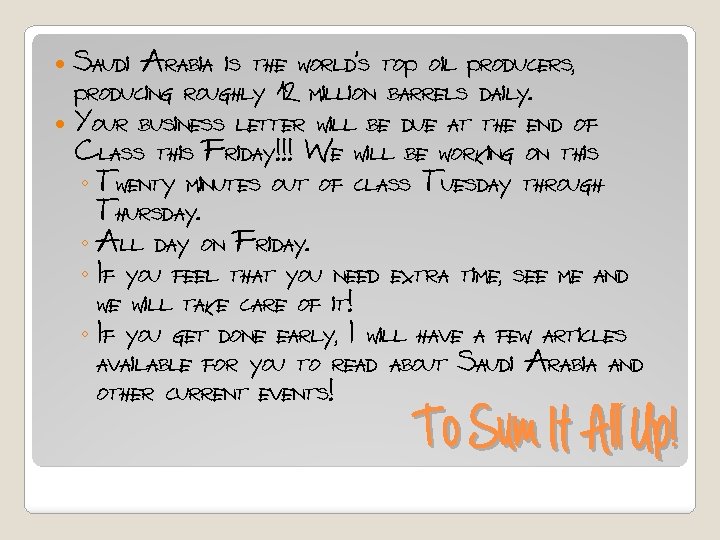 Saudi Arabia is the world's top oil producers,
producing roughly 12 million barrels daily.
Your business letter will be due at the end of
Class this Friday!!! We will be working on this
Twenty minutes out of class Tuesday through
Thursday.
All day on Friday.
If you feel that you need extra time, see me and
we will take care of it!
If you get done early, I will have a few articles
available for you to read about Saudi Arabia and
other current events!
To Sum It All Up!